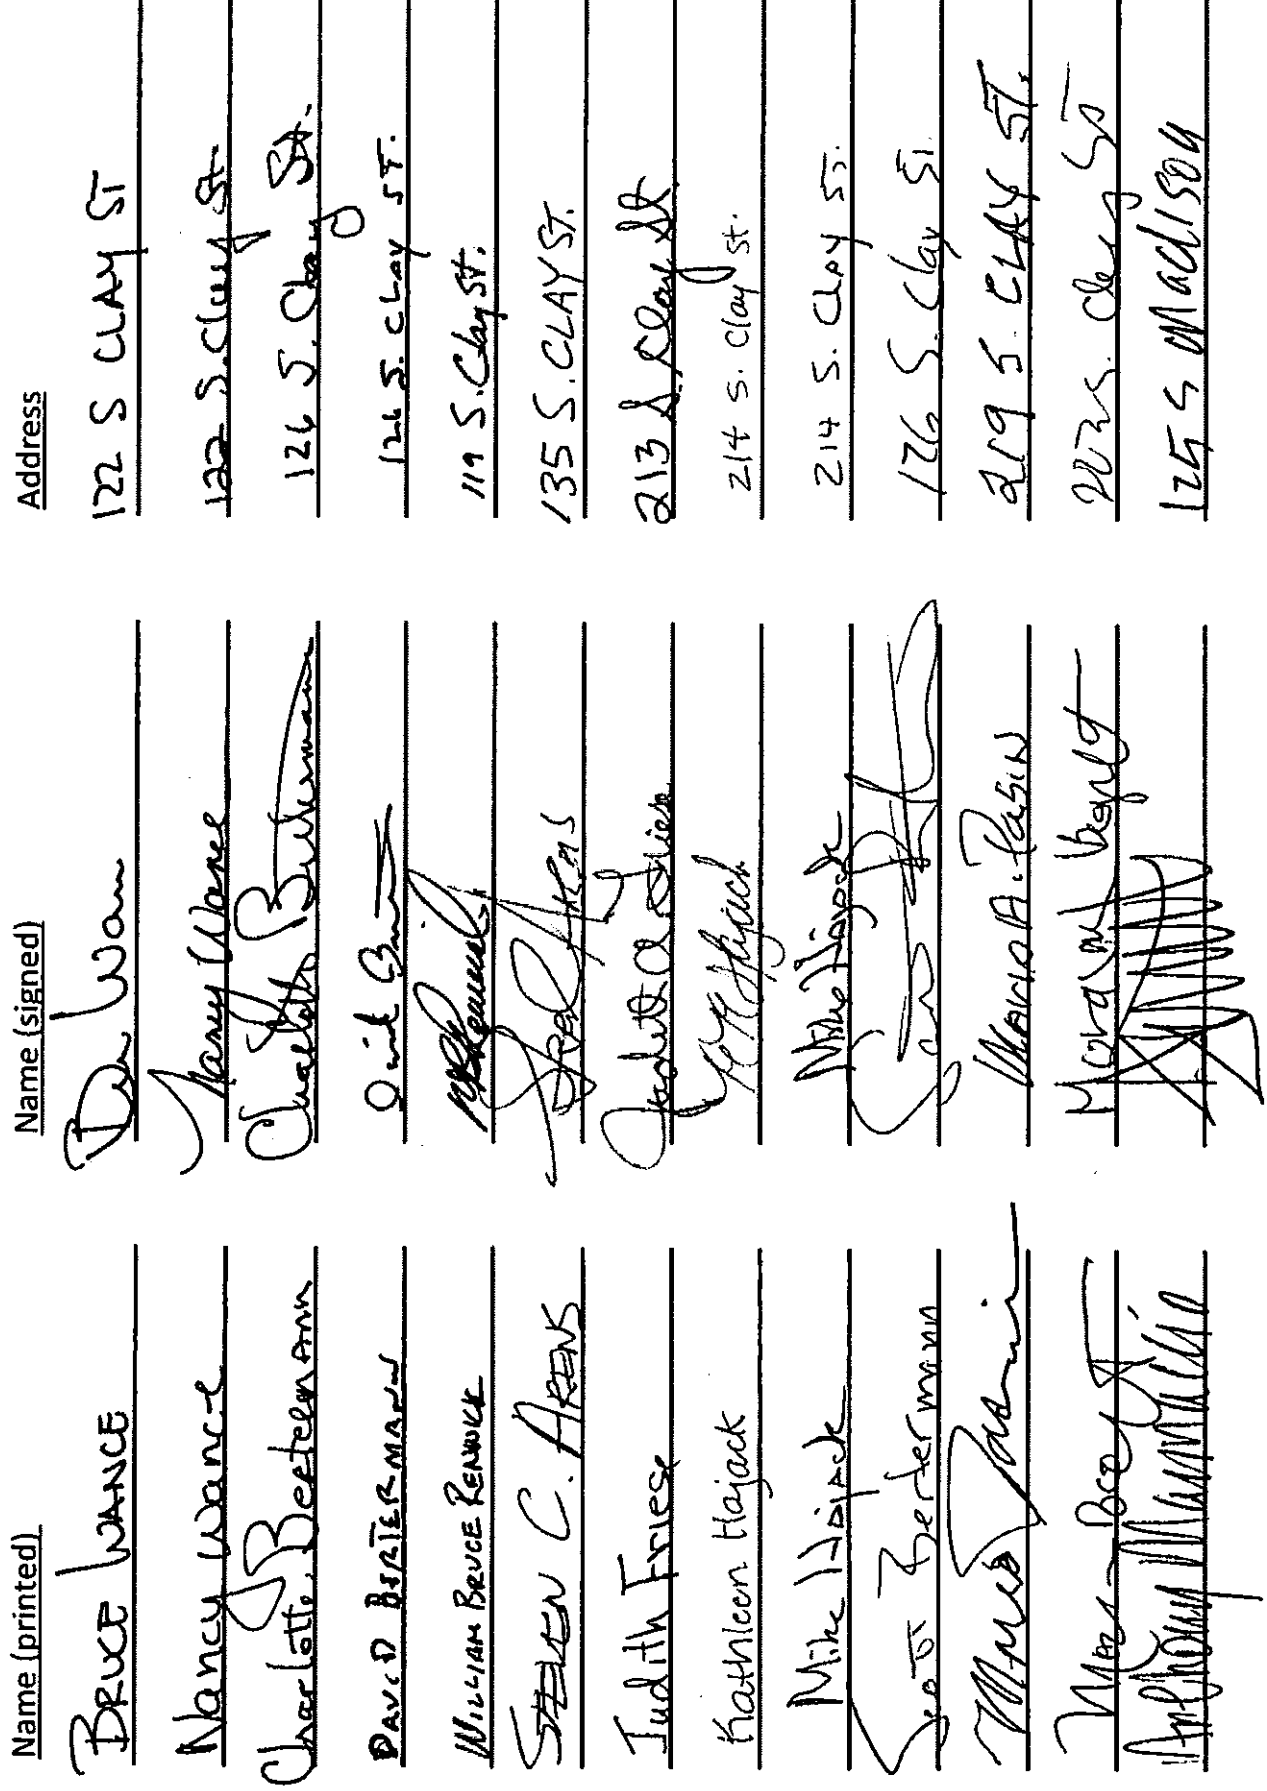 Name (printed) Name (signed) Address
BRUCE WANCE 122 S CLAY ST
Nancy Wance Nancy Wance 122 S. Clay St.
Charlotte Beeteemann Charlotte 126 S. Clay St.
DAVID David 126 S. CLAY ST.
WILLIAM BRUCE RENWICK 119 S. Clay St.
STEVEN C. ARENS 135 S. CLAY ST.
Judith Friese Judith A Friese 213 S. Clay St
Kathleen Hajack K M Hajack 214 S. Clay St.
Mike Hajack Mike Hajack 214 S. Clay ST.
Scott Berterman 126 S. Clay St
Mario Pasin Mario A. Pasin 219 S. CLAY ST.
S. Clay St
Anthony 125 S Madison